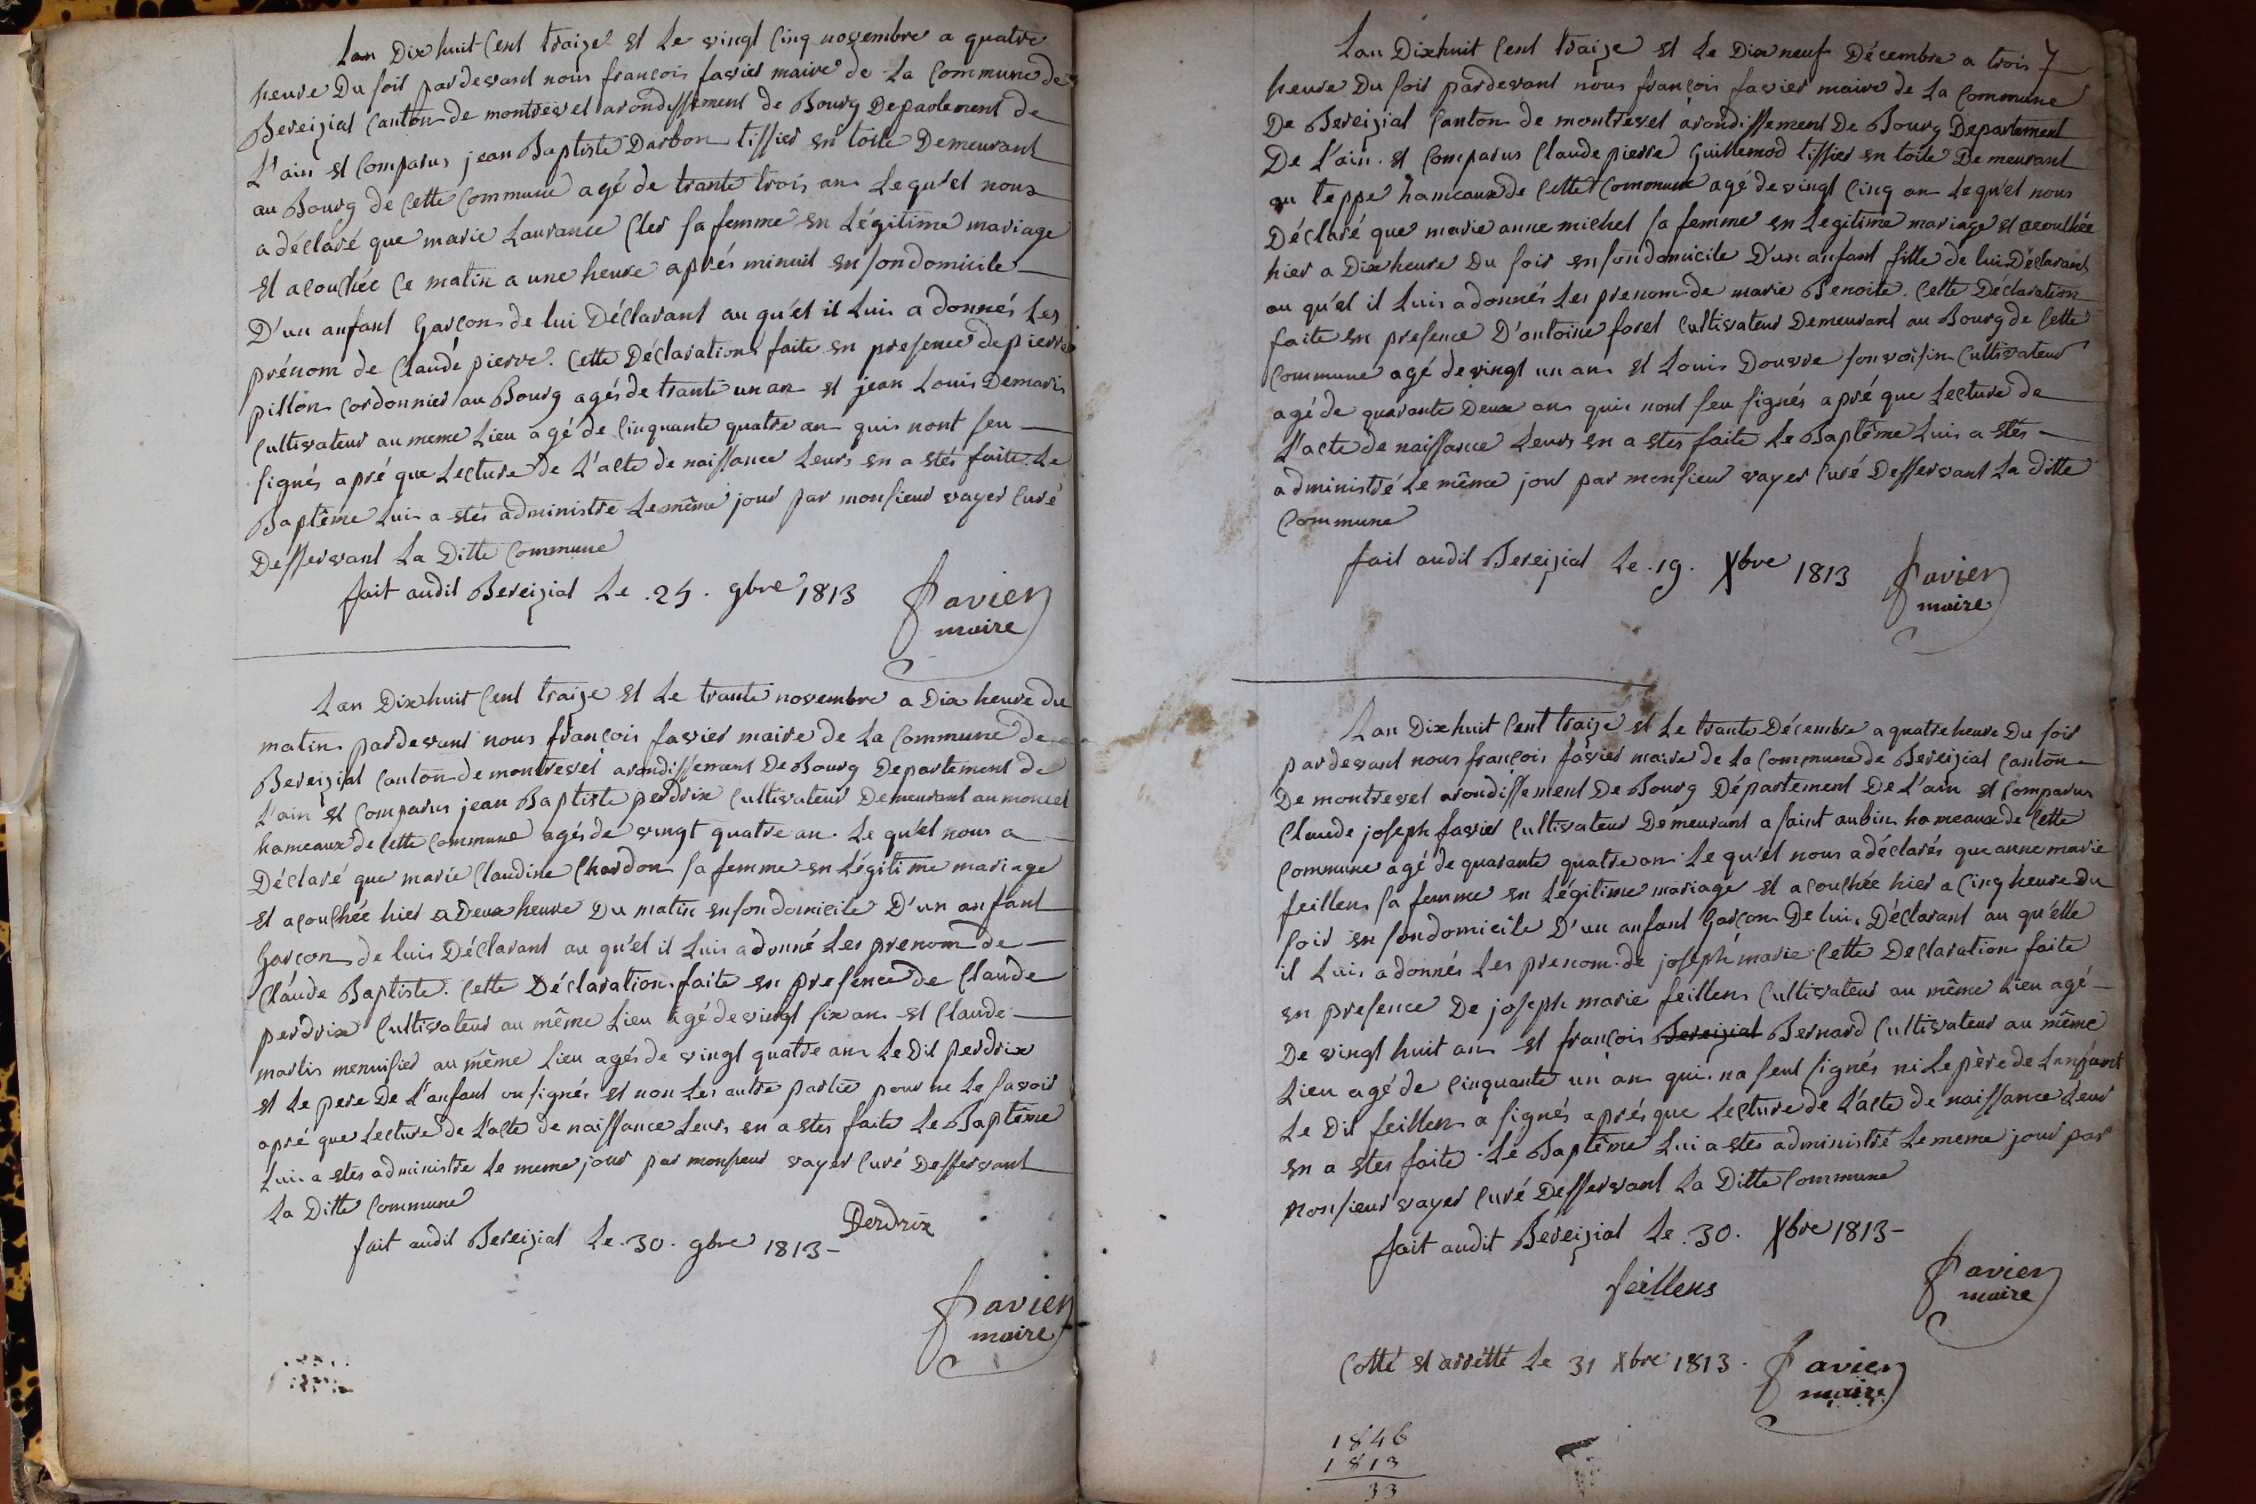 Lan Dixhuit Cent traize et Le vingt Cinq novembre a quatre
heure Du soir pardevant nous françois favier maire de La Commune de
Bereizial Canton de montrevel arondissement de Bourg Departement de
L'ain et Comparus jean Baptiste Darbon tissier en toile Demeurant
au Bourg de Cette Commune agé de trante trois an Lequ'el nous
a déclaré que marie Laurance Cler sa femme en Légitime mariage
et acouchée Ce matin a une heure aprés minuit en son domicile
D'un anfant Garçon de lui Déclarant au qu'el il Lui a donnés Les
prénom de Claude pierre. Cette Déclaration faite en presence de pierre
pillon Cordonnier au Bourg agés de trante un an et jean Louis Demaris
Cultivateur au meme Lieu agé de Cinquante quatre an qui nont seu
signés apré que Lecture de L'acte de naissance Leurs en a etés faite. Le
Baptême Lui a etés administre Le même jour par monsieur vayer Curé
Desservant La Ditte Commune
fait audit Bereizial Le . 25 . 9bre 1813
Favier
maire
Lan Dixhuit Cent traize et Le trante novembre a Dix heure du
matin pardevant nous françois favier maire de La Commune de
Bereizial Canton de montrevel arondissement De Bourg Departement de
L'ain et Comparus jean Baptiste perdrix Cultivateur Demeurant au moncel
hameaux de Cette Commune agés de vingt quatre an. Le qu'el nous a
Déclaré que marie Claudine Chardon sa femme en Légitime mariage
et acouchée hier a Deux heure Du matin en son domicile D'un anfant
Garçon de lui Déclarant au qu'el il Lui a donné Les prenom de
Claude Baptiste. Cette Déclaration faite en presence de Claude
perdrix Cultivateur au même Lieu agé de vingt six an et Claude
martin menuisier au même Lieu agés de vingt quatre an Le Dit perdrix
et Le pere De L'anfant on signés et non Les autre partie pour ne Le savoir
apré que Lecture de L'acte de naissance Leurs en a etés faite Le Baptême
Lui a etés administre Le meme jour par monsieur vayer Curé Desservant
La Ditte Commune
fait audit Bereizial Le . 30 . 9bre 1813 -
Perdrix
Favier
maire
7
Lan Dixhuit Cent traize et Le Dix neuf Décembre a trois
heure Du soir pardevant nous françois favier maire de La Commune
De Bereizial Canton de montrevel arondissement De Bourg Departement
De L'ain. et Comparus Claude pierre Guillemod tissier en toile Demeurant
au teppe hameaux de Cette Commune agé de vingt Cinq an Lequ'el nous
Déclaré que marie anne michel sa femme en Legitime mariage et acouchée
hier a Dix heure Du soir en son domicile D'un anfant fille de lui Déclarant
au qu'el il Lui a donnés Les prenom de marie Benoite. Cette Declaration
faite en presence D'antoine forel Cultivateur Demeurant au Bourg de Cette
Commune agé de vingt un an et Louis Douvre son voisin Cultivateur
agé de quarante Deux an qui nont seu signés apré que Lecture de
L'acte de naissance Leurs en a etés faite Le Baptême Lui a etés
administré Le même jour par monsieur vayer Curé Desservant La ditte
Commune
fait audit Bereizial Le . 19 . Xbre 1813
Favier
maire
Lan Dixhuit Cent traize et Le trante Décembre a quatre heure Du soir
pardevant nous françois favier maire de La Commune de Bereizial Canton
De montrevel arondissement De Bourg Département De L'ain et Comparus
Claude joseph favier Cultivateur Demeurant a saint aubin hameaux de Cette
Commune agé de quarante quatre an Le qu'el nous a déclarés que anne marie
feillens sa femme en Légitime mariage et acouchée hier a Cinq heure Du
soir en son domicile D'un anfant Garçon De lui Déclarant au qu'elle
il Lui a donnés Les prenom de joseph marie Cette Declaration faite
en presence De joseph marie feillens Cultivateur au même Lieu agé
De vingt huit an et françois Bereizial Bernard Cultivateur au même
Lieu agé de Cinquante un an qui na seut signés ni Le père de Lanfant
Le Dit feillens a signés aprés que Lecture de L'acte de naissance Leur
en a etés faite. Le Baptême Lui a etés administré Le meme jour par
Monsieur vayer Curé Desservant La Ditte Commune
fait audit Bereizial Le . 30 . Xbre 1813 -
feillens
Favier
maire
Cotté et arretté Le 31 Xbre 1813.
Favier
maire
1846
1813
33